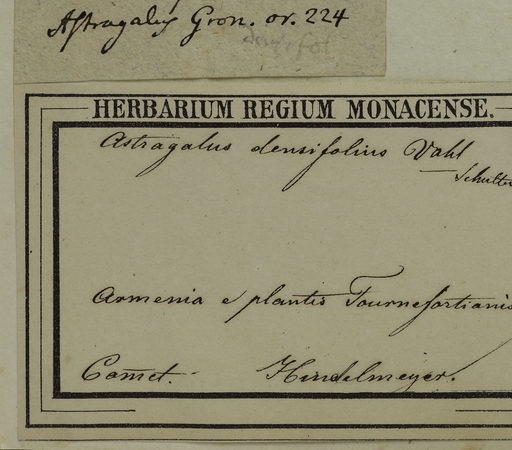 Astragalus Gron. or. 224
densifol
HERBARIUM REGIUM MONACENSE.
Astragalus densifolius Vahl
Armenia e plantis Tournefortianis
Com̅et. Hindelmeyer.